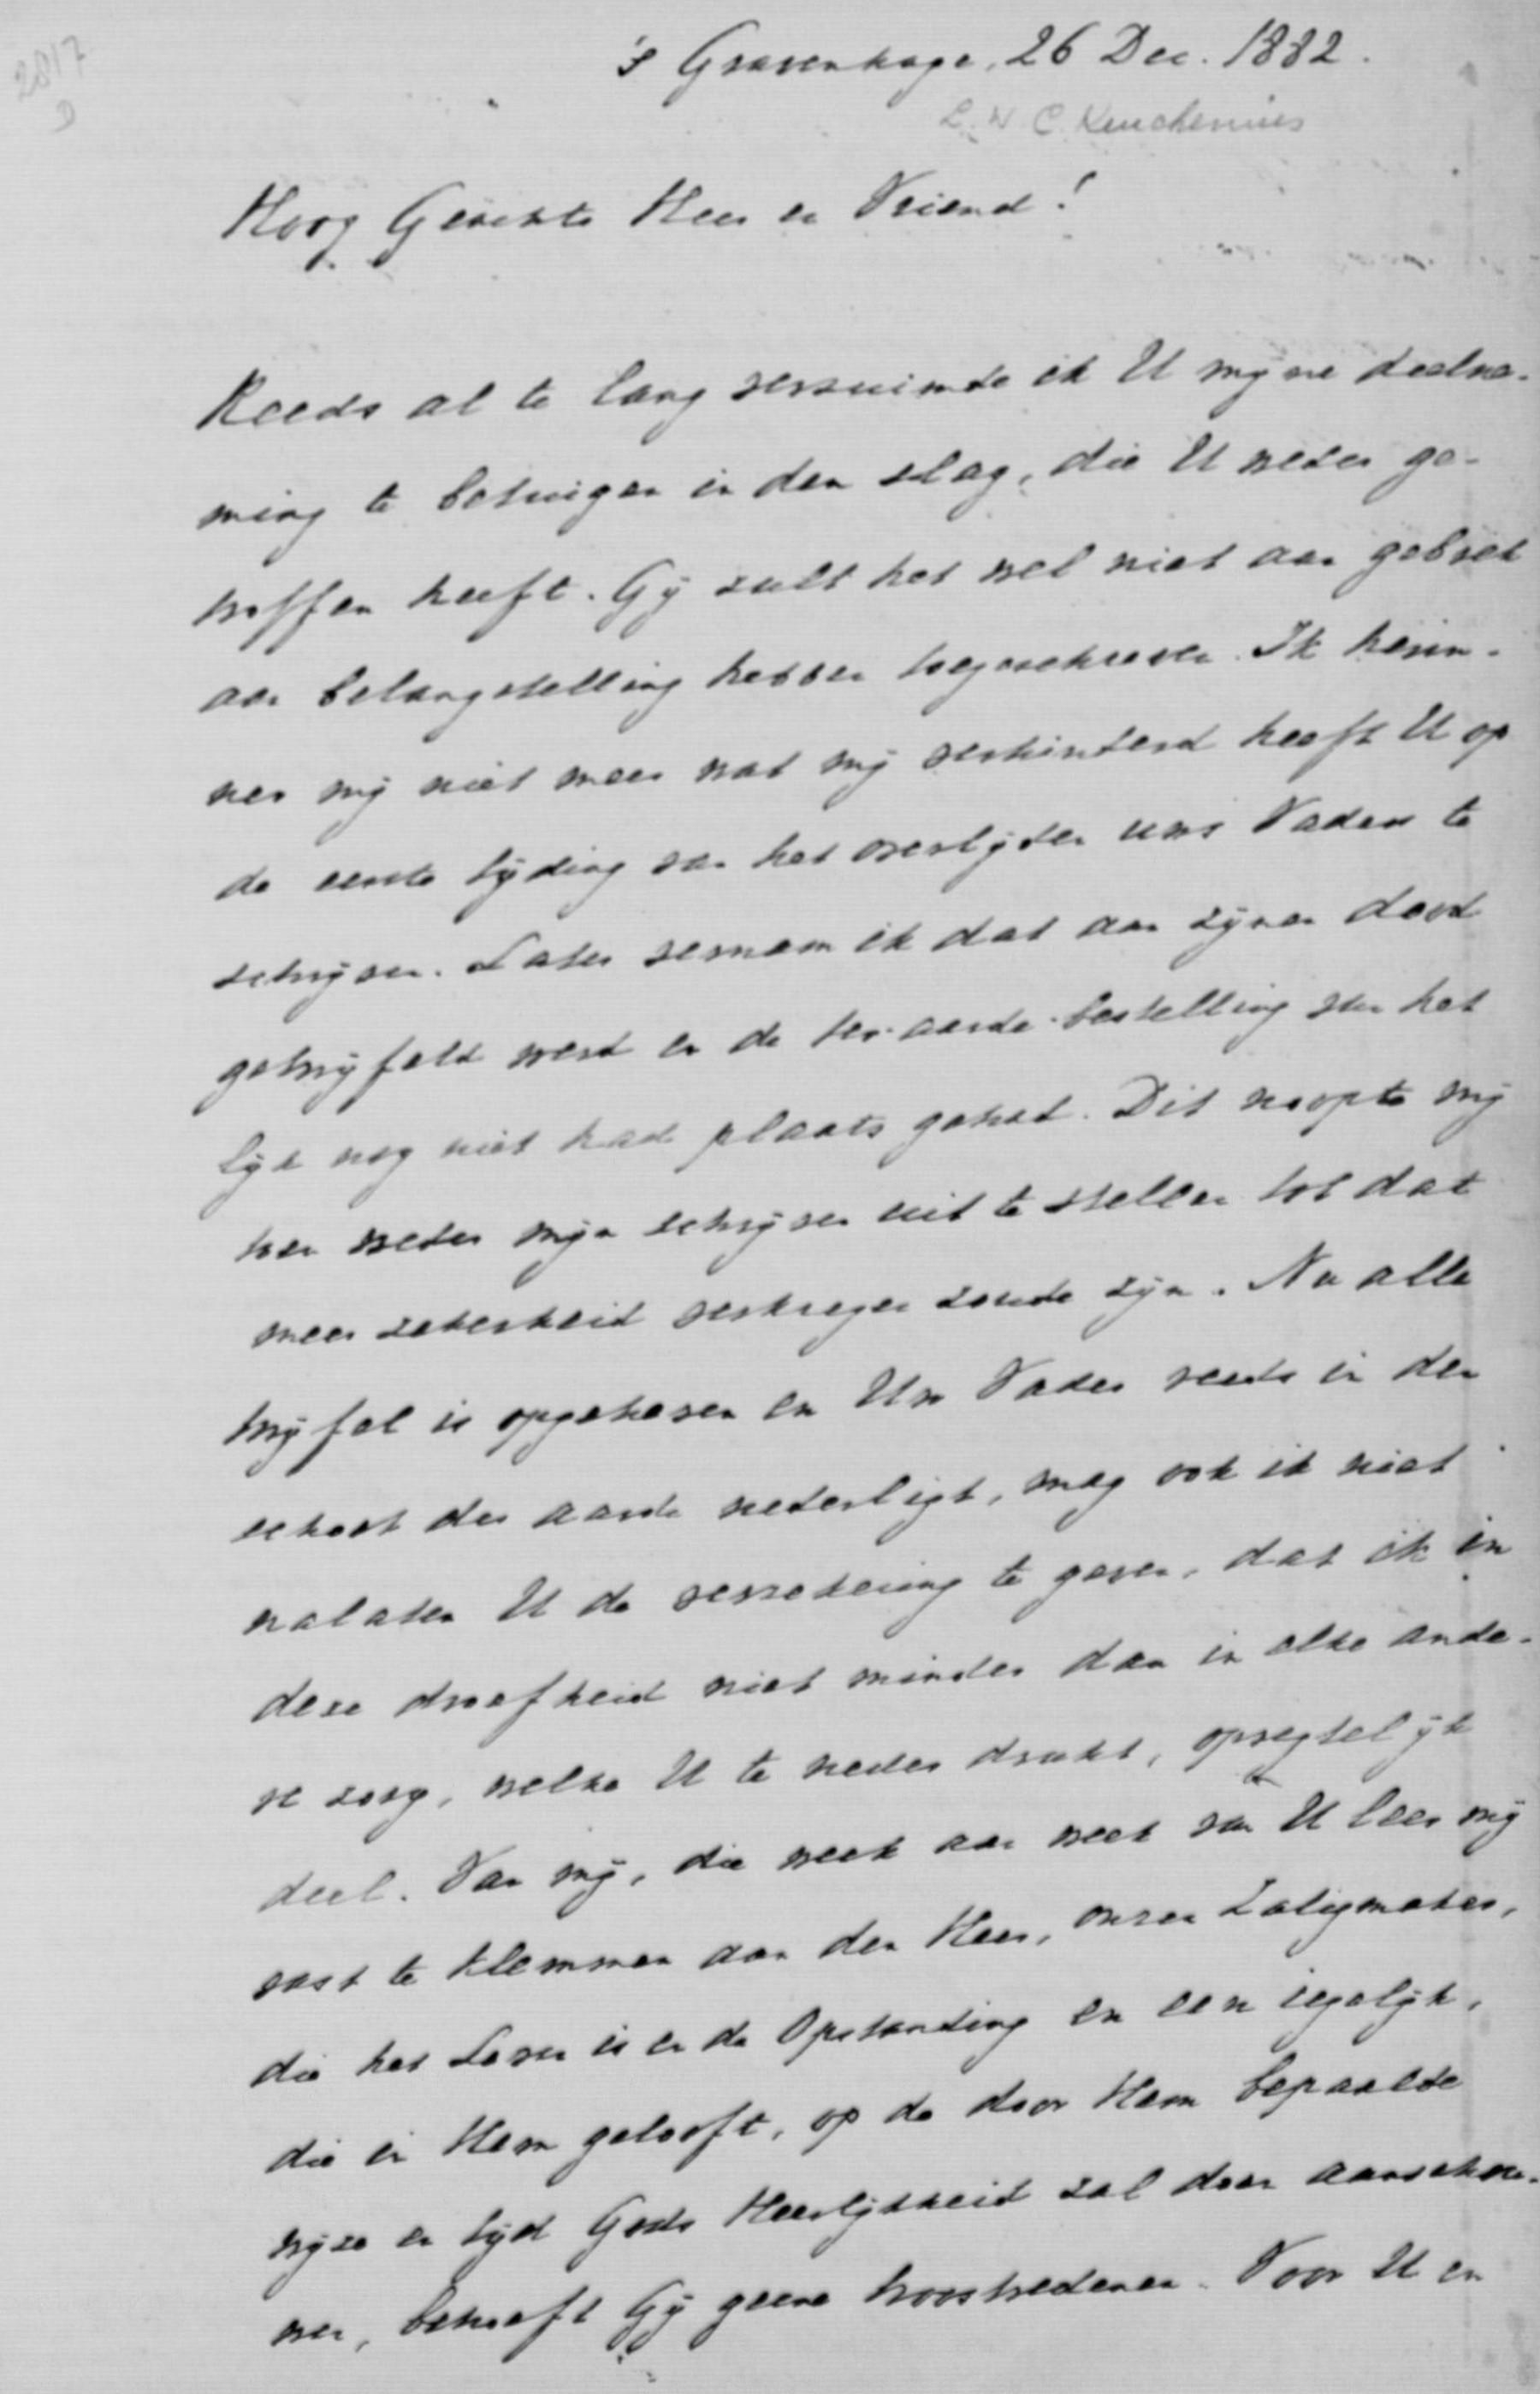 2817
D
's Gravenhage, 26 Dec. 1882.
L. W. C. Keuchenius
Hoog Geachte Heer en Vriend!
Reeds al te lang verzuimde ik U mijne deelne-
ming te betuigen in den slag, die U weder ge-
troffen heeft. Gij zult het wel niet aan gebrek
aan belangstelling hebben toegeschreven. Ik herin-
ner mij niet meer wat mij verhinderd heeft U op
de eerste tijding van het overlijden uws Vaders te
schrijven. Later vernam ik dat aan zijnen dood
getwijfeld werd en de ter-aarde-bestelling van het
lijk nog niet had plaats gehad. Dit noopte mij
toen weder mijn schrijven uit te stellen tot dat
meer zekerheid verkregen zoude zijn. Nu alle
twijfel is opgeheven en Uw Vader reeds in den
schoot der aarde nederligt, mag ook ik niet
nalaten U de verzekering te geven, dat ik in
deze droefheid niet minder dan in elke ande-
re zorg, welke U te neder drukt, opregtelijk
deel. Van mij, die week aan week van U leer mij
vast te klemmen aan den Heer, onzen Zaligmaker,
die het Leven is en de Opstanding en een iegelijk,
die in Hem gelooft, op de door Hem bepaalde
wijze en tijd Gods Heerlijkheid zal doen aanschou-
wen, behoeft Gij geene troostredenen. Voor U en